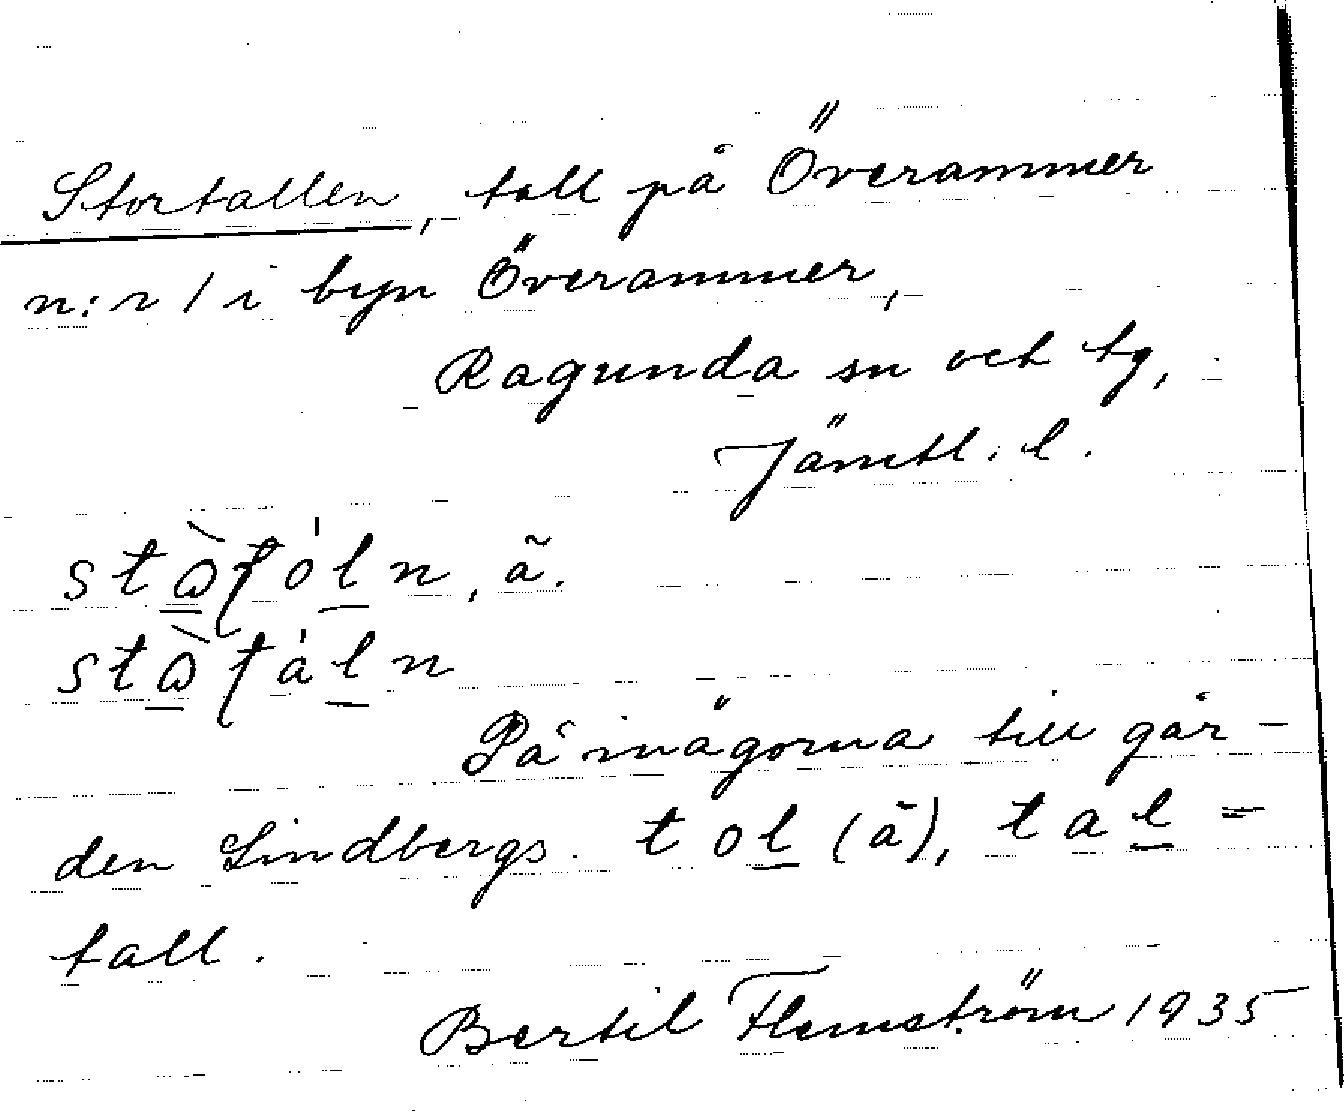 Stortallen, tall på Överammer
n:r 1 i byn Överammer,
Ragunda sn och tg,
Jämtl. l.
På inägorna till går-
den Lindbergs. tol (ä), tal =
tall.
Bertil Flemström 1935